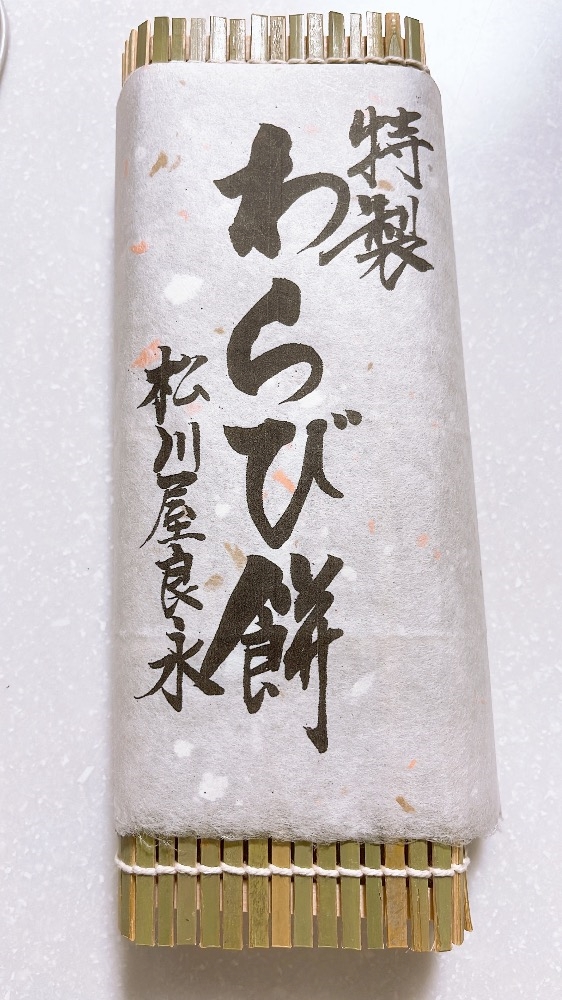 特製
わらび餅
松川屋良永